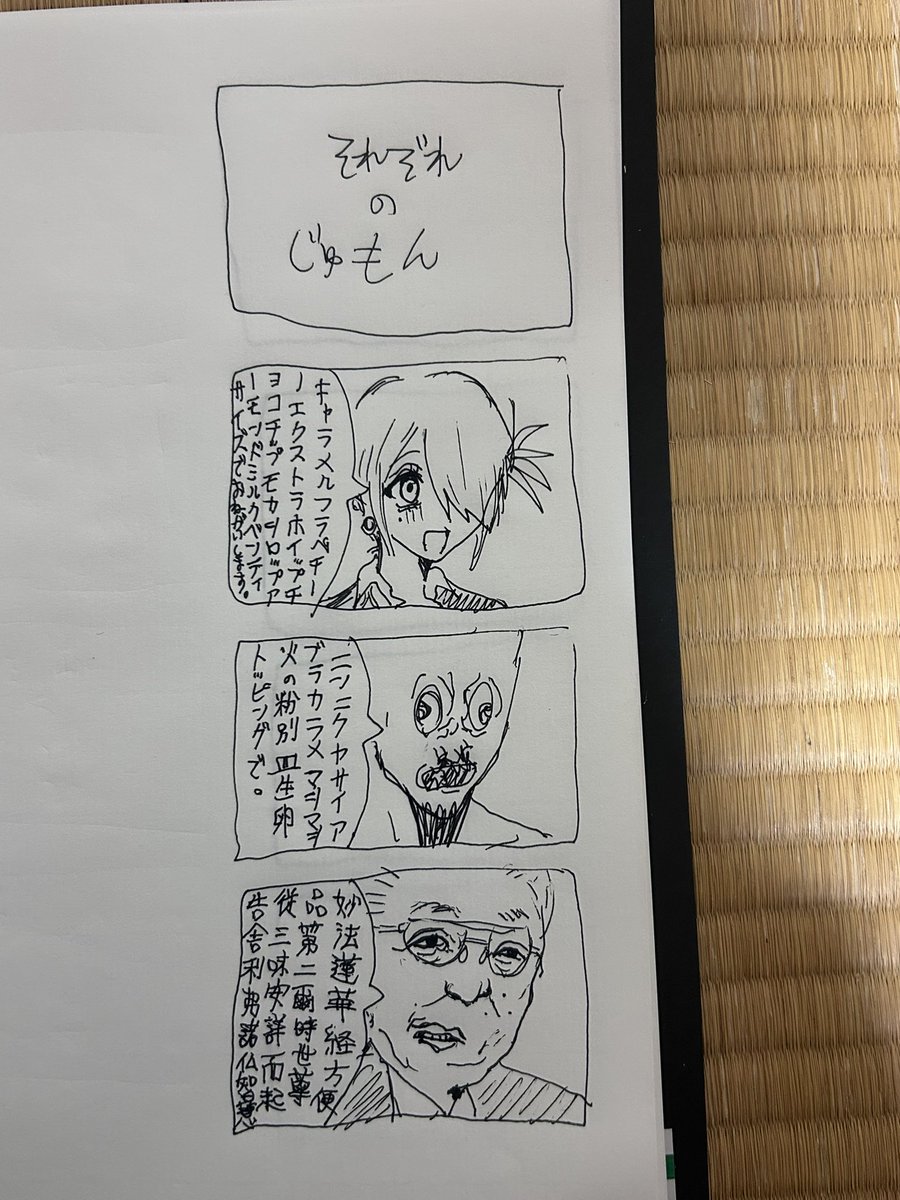 それぞれ
の
じゅもん
キャラメルフラペチー
ノエクストラホイップチ
ョコチップモカシロップア
ーモンドミルクベンティ
サイズでおねがいします。
ニンニクヤサイア
ブラカラメマシマシ
火の粉別皿生卵
トッピングで。
妙法蓮華経方便
品第二爾時世尊
従三昧安詳而起
告舎利弗諸仏智慧